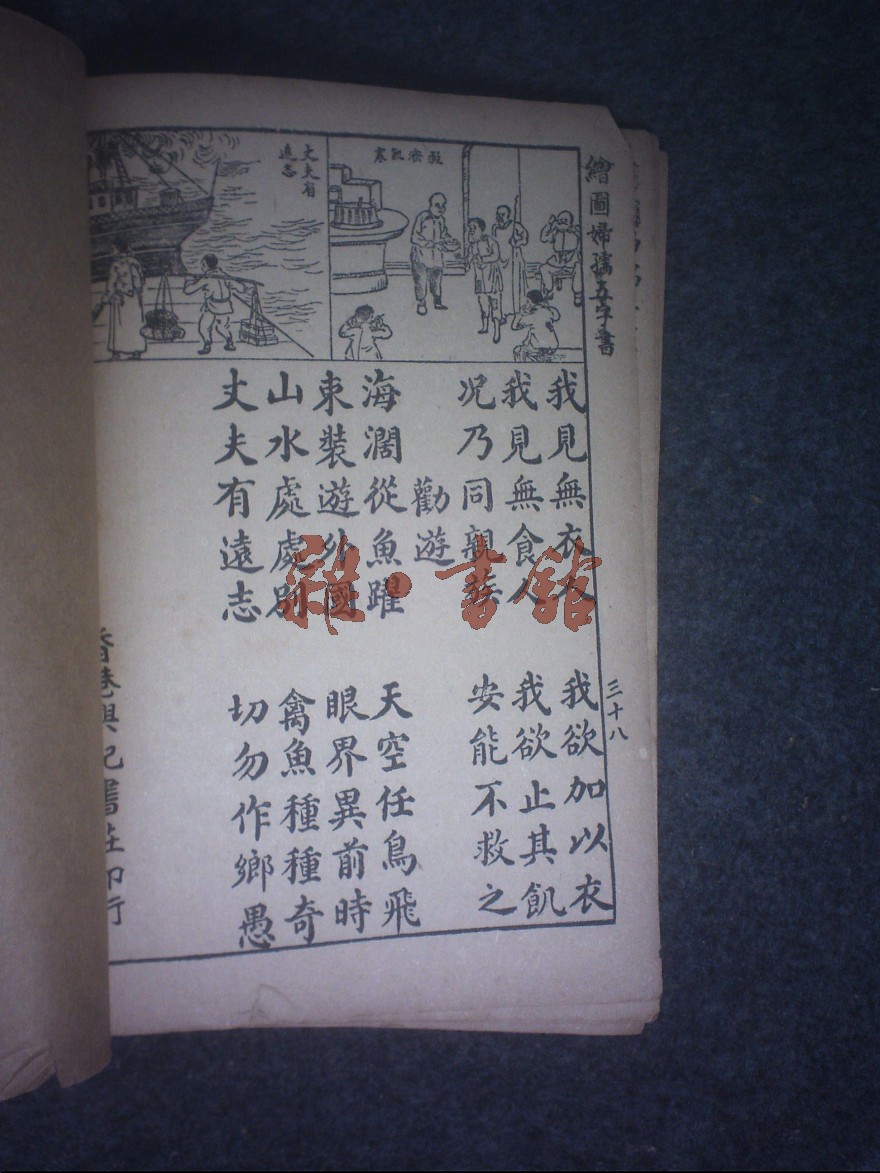 繪圖婦孺五字書
三十八
賑濟飢寒
丈夫有
遠志
我見無衣人 我欲加以衣
我見無食人 我欲止其飢
况乃同親族 安能不救之
勸遊
海濶從魚躍 天空任鳥飛
束裝遊外國 眼界異前時
山水處處別 禽魚種種奇
丈夫有遠志 切勿作鄉愚
香港興記書莊印行
雜·書館